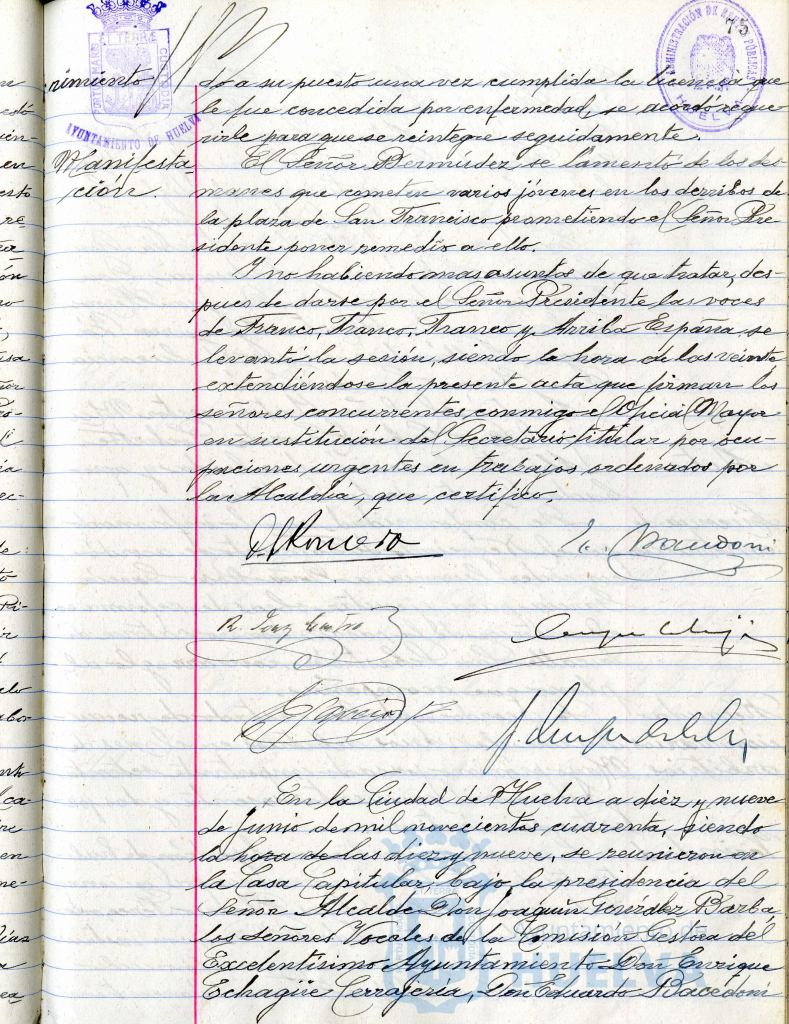 75
rimiento
do a su puesto una vez cumplida la licencia que
le fue concedida por enfermedad, se acordó reque-
rirle para que se reintegre seguidamente.
AYUNTAMIENTO DE HUELVA
Manifesta-
ción.
El Señor Bermúdez se lamentó de los des-
manes que cometen varios jóvenes en los derribos de
la plaza de San Francisco prometiendo el Señor Pre-
sidente poner remedio a ello.
Y no habiendo mas asuntos de que tratar, des-
pues de darse por el Señor Presidente las voces
de Franco, Franco, Franco y Arriba España, se
levantó la sesión, siendo la hora de las veinte
extendiéndose la presente acta que firman los
señores concurrentes, conmigo el Oficial Mayor
en sustitución del Secretario titular por ocu-
paciones urgentes en trabajos ordenados por
la Alcaldía, que certifico.
Romero
En la Ciudad de Huelva a diez y nueve
de Junio de mil novecientos cuarenta, siendo
la hora de las diez y nueve, se reunieron en
la Casa Capitular, bajo la presidencia del
Señor Alcalde Don Joaquín González Barba
los señores Vocales de la Comisión Gestora del
Excelentísimo Ayuntamiento Don Enrique
Echagüe Cerrajería, Don Eduardo Bacedoni
Ayuntamiento de
HUELVA